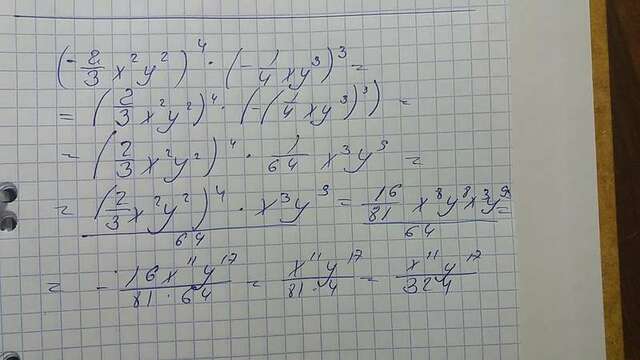 (-2/3 x²y²)⁴ · (-1/4 xy³)³ =
= (2/3 x²y²)⁴ · (-(1/4 xy³)³) =
= (2/3 x²y²)⁴ · 1/64 x³y⁹ =
= (2/3 x²y²)⁴ · x³y⁹ / 64 = 16/81 x⁸y⁸x³y⁹ / 64 =
= - 16x¹¹y¹⁷ / 81 · 64 = x¹¹y¹⁷ / 81 · 4 = x¹¹y¹⁷ / 324